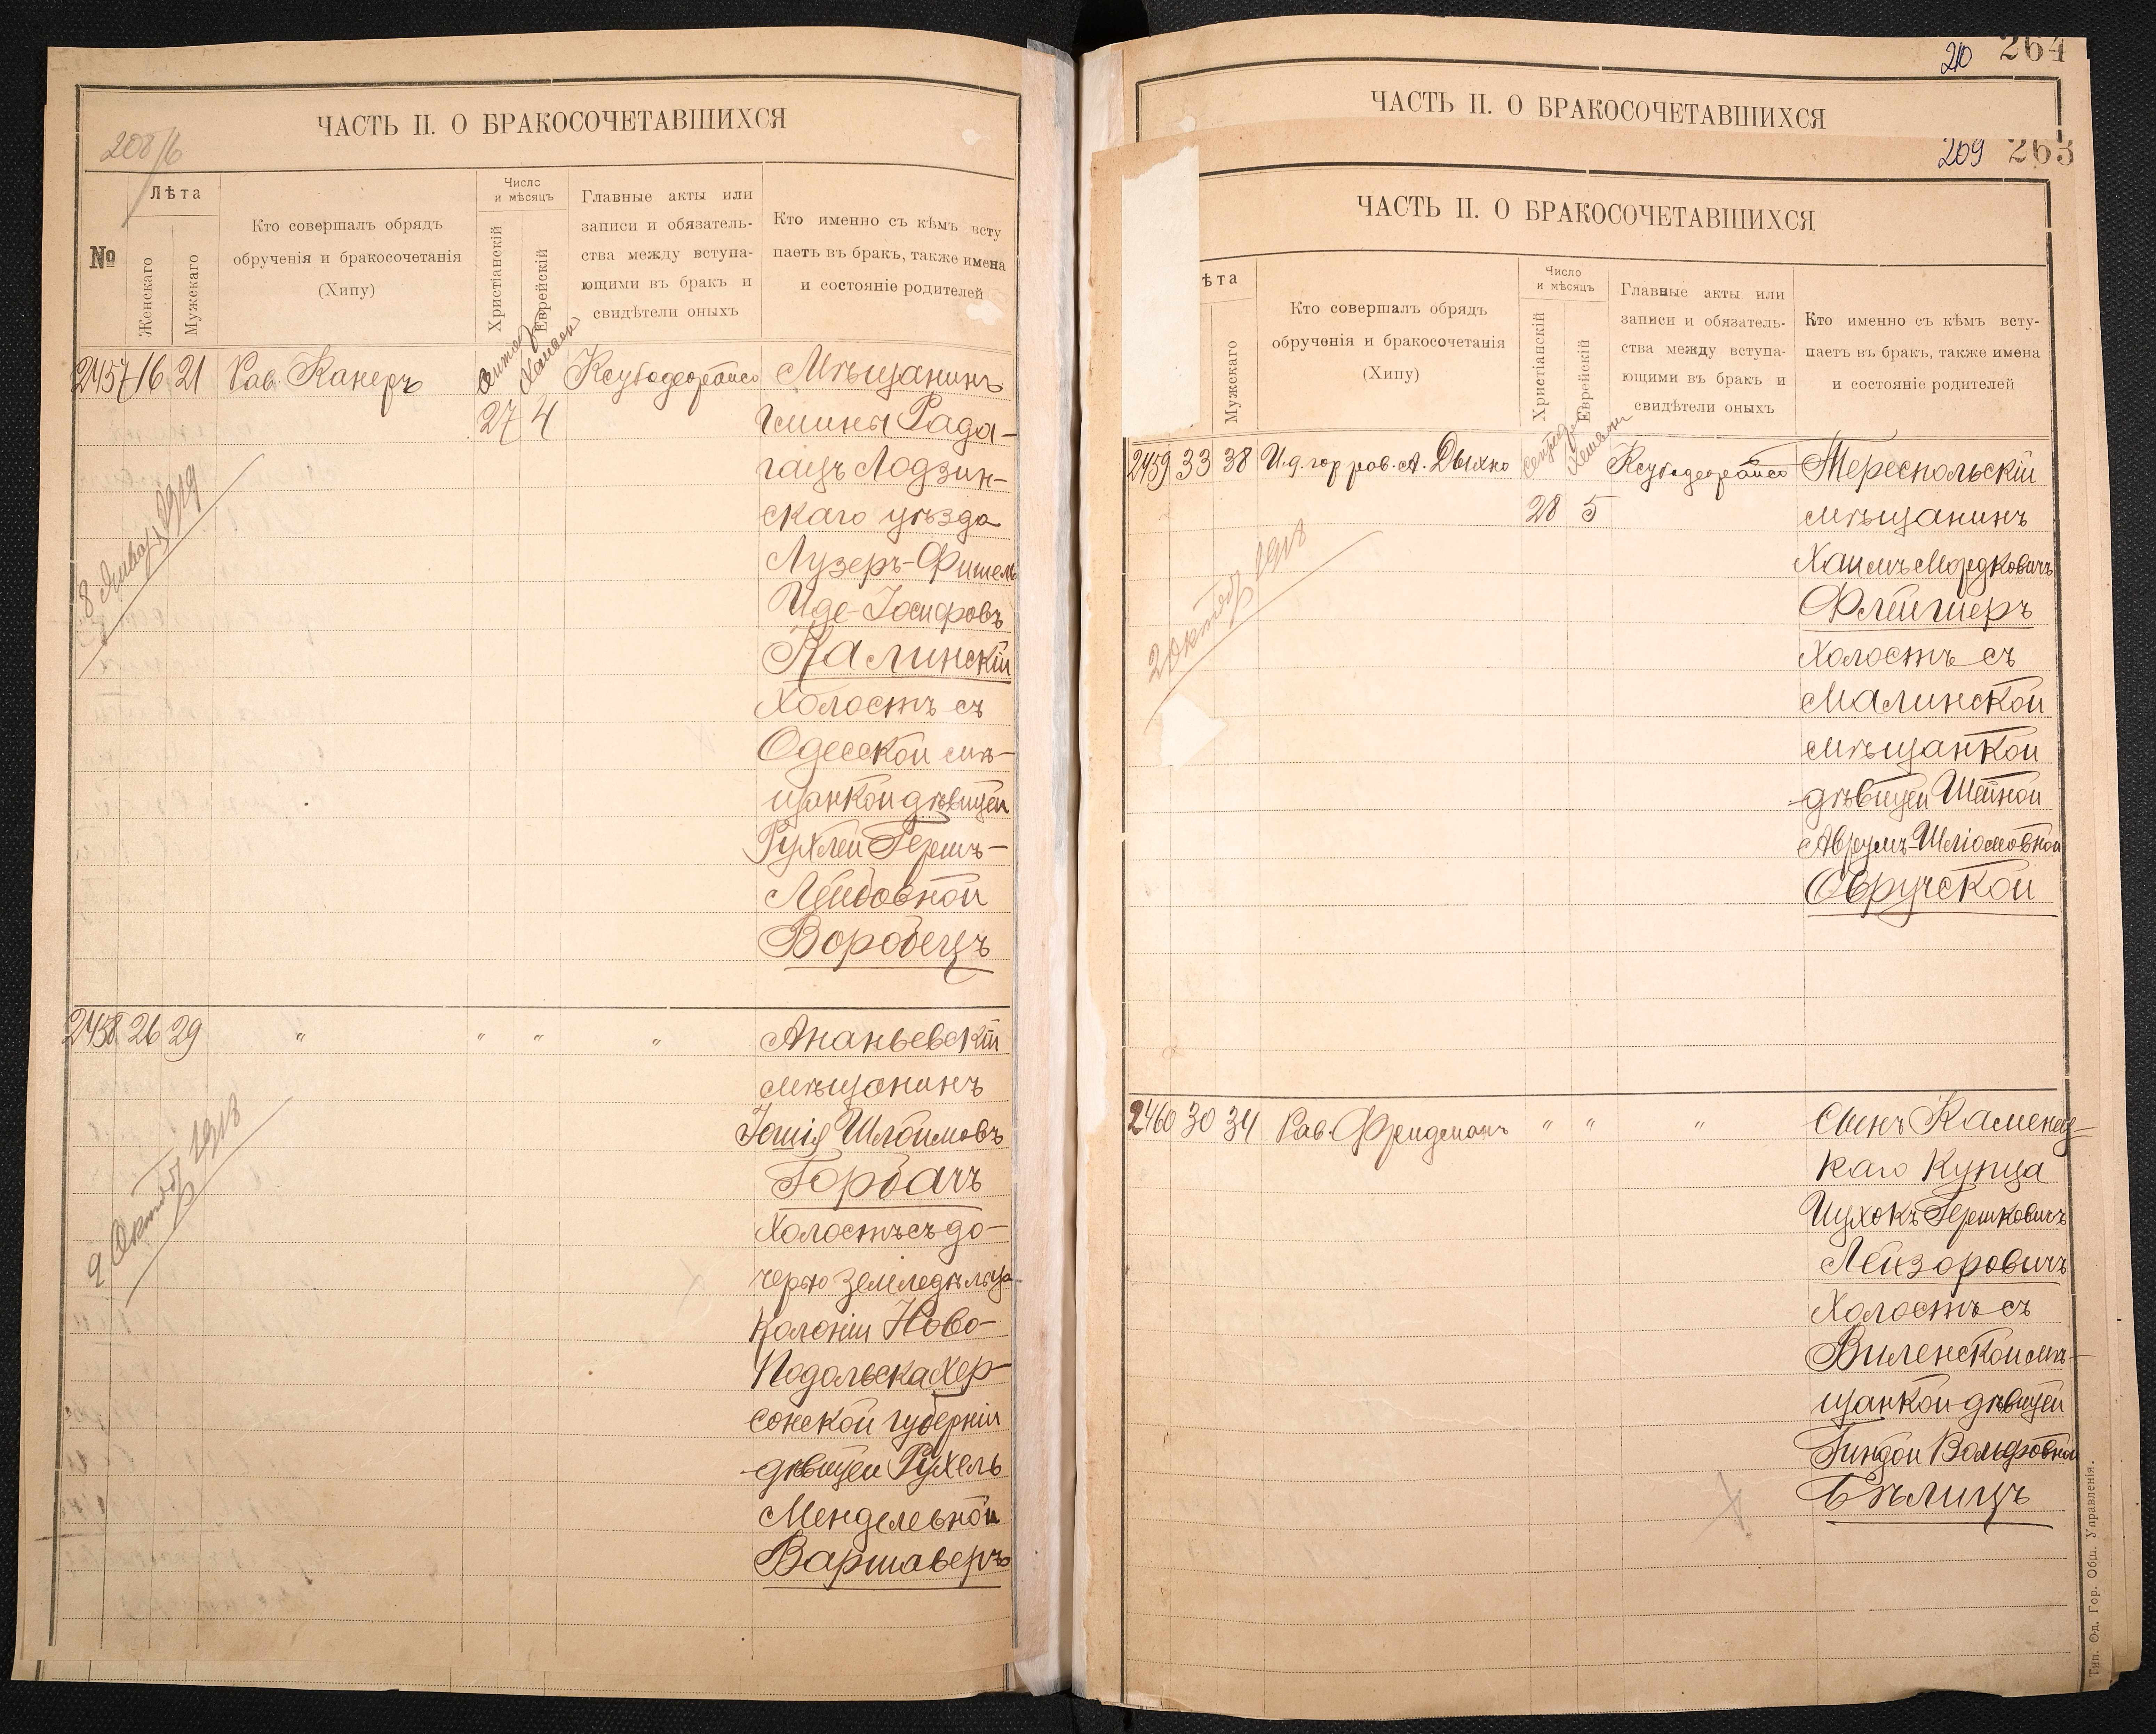 ЧАСТЬ II. О БРАКОСОЧЕТАВШИХСЯ
№
Лѣта
Женскаго
Мужскаго
Кто совершалъ обрядъ
обрученія и бракосочетанія
(Хипу)
Число
и мѣсяцъ
Христіанскій
Еврейскій
Главные акты или
записи и обязатель-
ства между вступа-
ющими въ бракъ и
свидѣтели оныхъ
Кто именно съ кѣмъ всту
паетъ въ бракъ, также имена
и состояніе родителей
2457 16 21 Рав. Канеръ
27 4
Мѣщанинъ
Гмины Рада-
гацъ Лодзин-
скаго уѣзда
Лузеръ-Фишель
Иде-Іосифовъ
Калинскій
Холостъ съ
Одесской мѣ-
щанкой дѣвицей
Рухлей Гершъ-
Лейбовной
Воробецъ
8 Января 1919
2458 26 29 " " " "
Ананьевскій
мѣщанинъ
Іошія Шлоимовъ
Горбачъ
Холостъ съ до-
черью земледѣльца
Колоніи Ново-
Подольска Хер-
сонской губерніи
дѣвицей Рухель
Менделевной
Варшаверъ
9 Октябр 1918
210 264
ЧАСТЬ II. О БРАКОСОЧЕТАВШИХСЯ
209 263
ЧАСТЬ II. О БРАКОСОЧЕТАВШИХСЯ
ѣта
Мужскаго
Кто совершалъ обрядъ
обрученія и бракосочетанія
(Хипу)
Число
и мѣсяцъ
Христіанскій
Еврейскій
Главные акты или
записи и обязатель-
ства между вступа-
ющими въ бракъ и
свидѣтели оныхъ
Кто именно съ кѣмъ всту-
паетъ въ бракъ, также имена
и состояніе родителей
2459 33 38 И.д. гор. рав. А. Дыхно
28 5
Тереспольскій
мѣщанинъ
Хаимъ Мордковичъ
Флейшеръ
Холостъ съ
Малинской
мѣщанкой
дѣвицей Шейной
Аврумъ-Шліомовной
Овручской
2 Октябр 1918
2460 30 34 Рав. Фридманъ " " "
Сынъ Каменец-
каго Купца
Ицхокъ Гершковичъ
Лейзоровичъ
Холостъ съ
Виленской мѣ-
щанкой дѣвицей
Гиндой Вольфовной
Бѣлицъ
Тип. Од. Гор. Общ. Управленія.